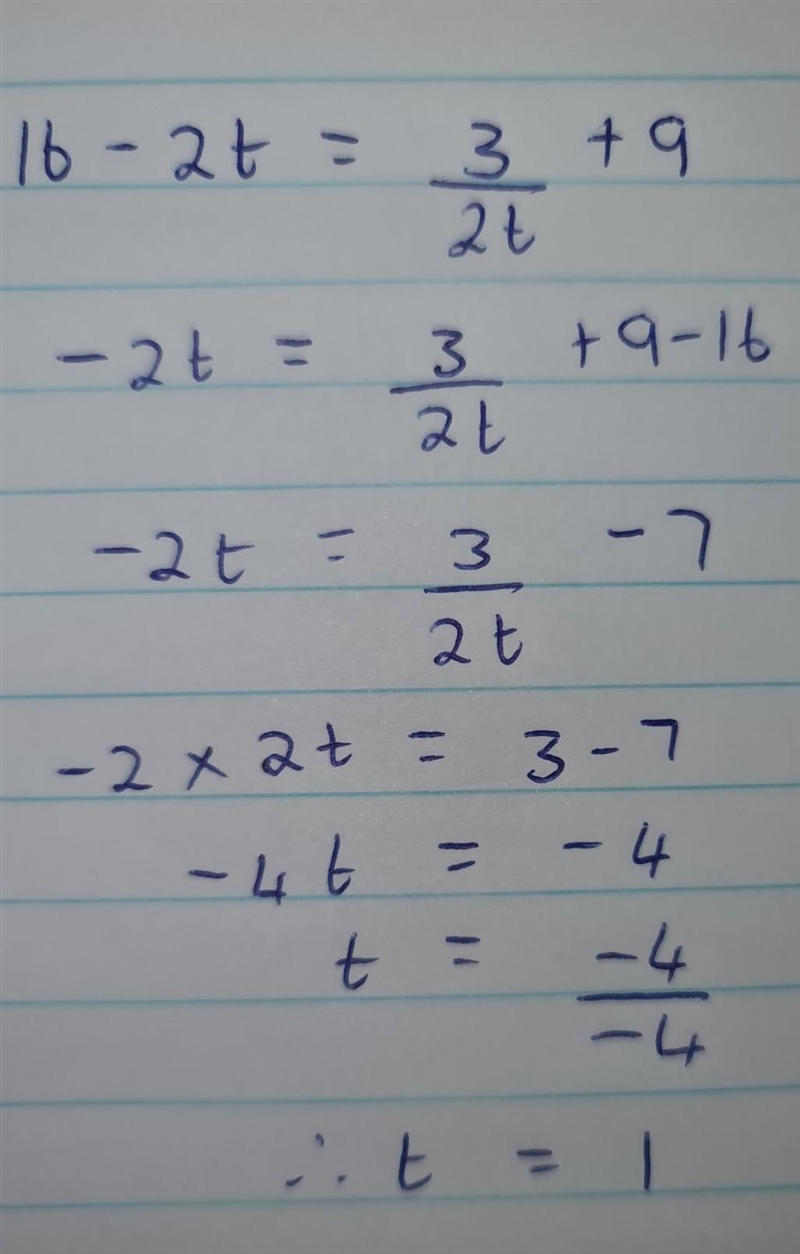 16 - 2t = 3/2t + 9
-2t = 3/2t + 9 - 16
-2t = 3/2t - 7
-2 × 2t = 3 - 7
-4t = -4
t = -4/-4
∴ t = 1